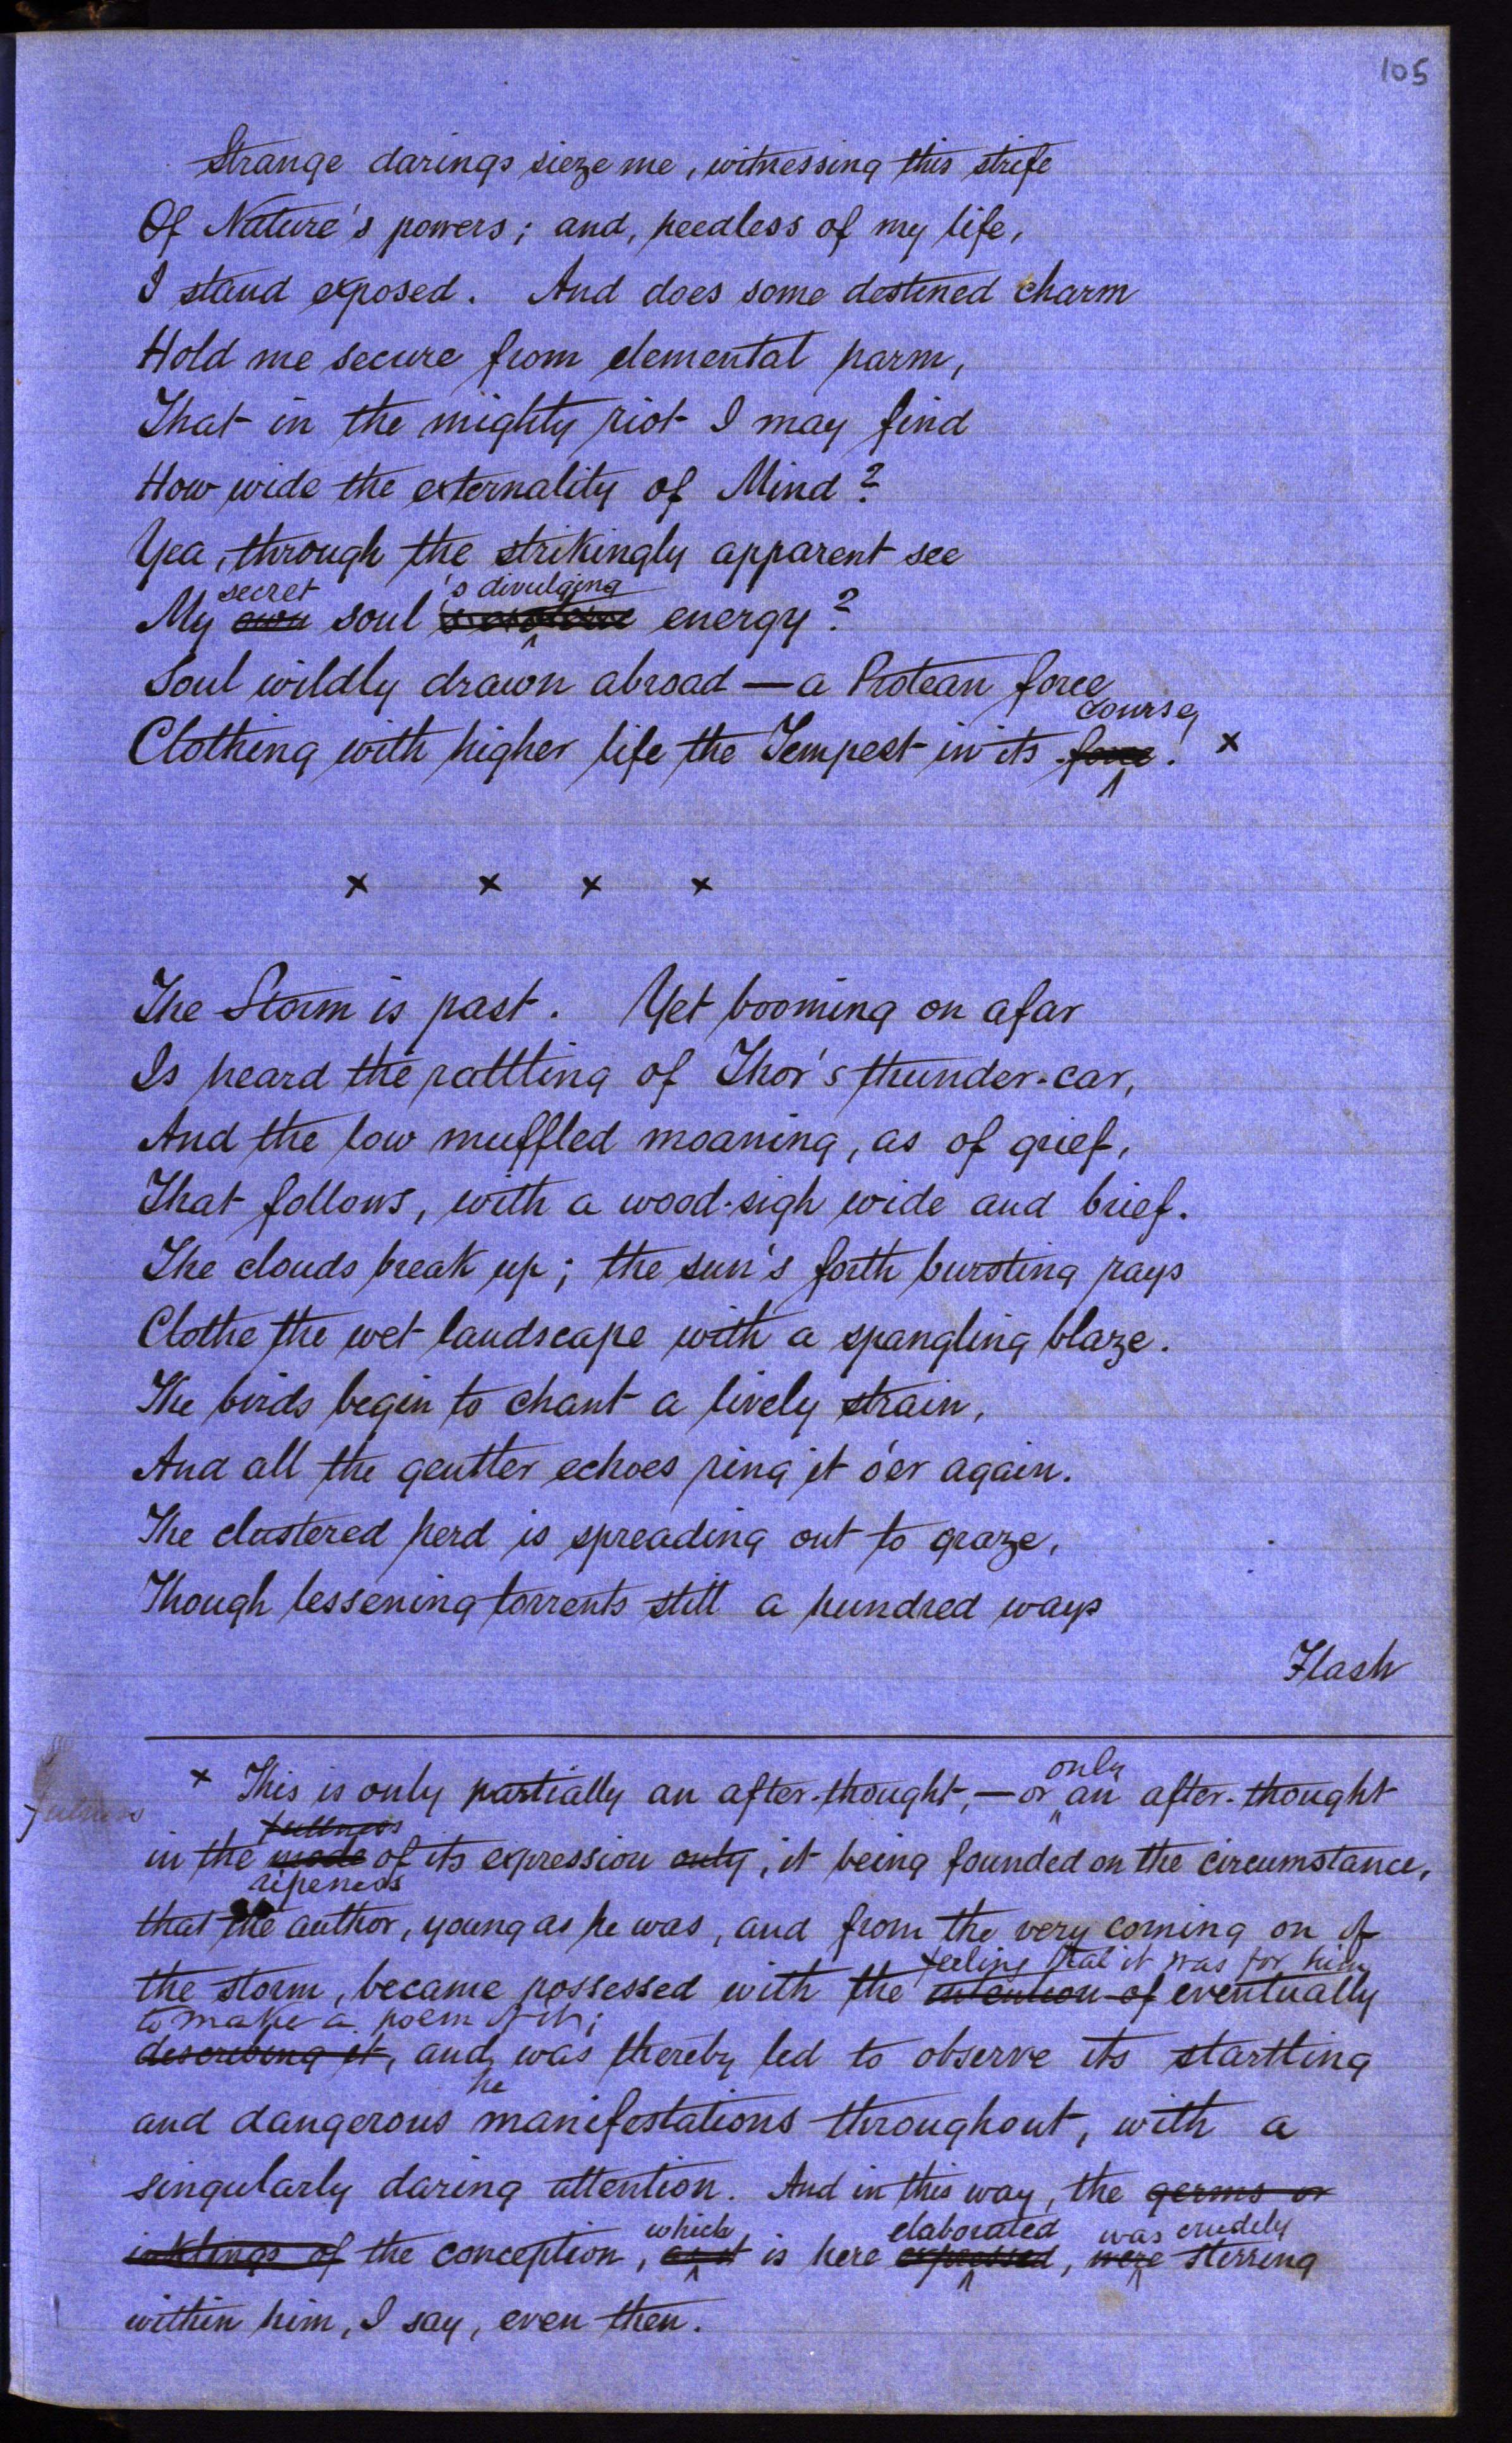 105
Strange darings sieze me, witnessing this strife
Of Nature's powers; and, heedless of my life,
I stand exposed. And does some destined charm
Hold me secure from elemental harm,
That in the mighty riot I may find
How wide the externality of Mind?
Yea, through the strikingly apparent see
secret 's divulging
My own soul energy?
Soul wildly drawn abroad — a Protean force
course,
Clothing with higher life the Tempest in its force. ×
× × × ×
The Storm is past. Yet booming on afar
Is heard the rattling of Thor's thunder-car,
And the low muffled moaning, as of grief,
That follows, with a wood-sigh wide and brief.
The clouds break up; the sun's forth bursting rays
Clothe the wet landscape with a spangling blaze.
The birds begin to chant a lively strain,
And all the gentler echoes ring it o'er again.
The clustered herd is spreading out to graze,
Though lessening torrents still a hundred ways
Flash
only
× This is only partially an after-thought, — or an after-thought
fulness
fullness
in the mode of its expression only, it being founded on the circumstance,
ripeness
that the author, young as he was, and from the very coming on of
feeling that it was for him
the storm, became possessed with the intention of eventually
to make a poem of it;
describing it, and was thereby led to observe its startling
he
and dangerous manifestations throughout, with a
singularly daring attention. And in this way, the germs or
which elaborated was crudely
inklings of the conception, as it is here expressed, were stirring
within him, I say, even then.